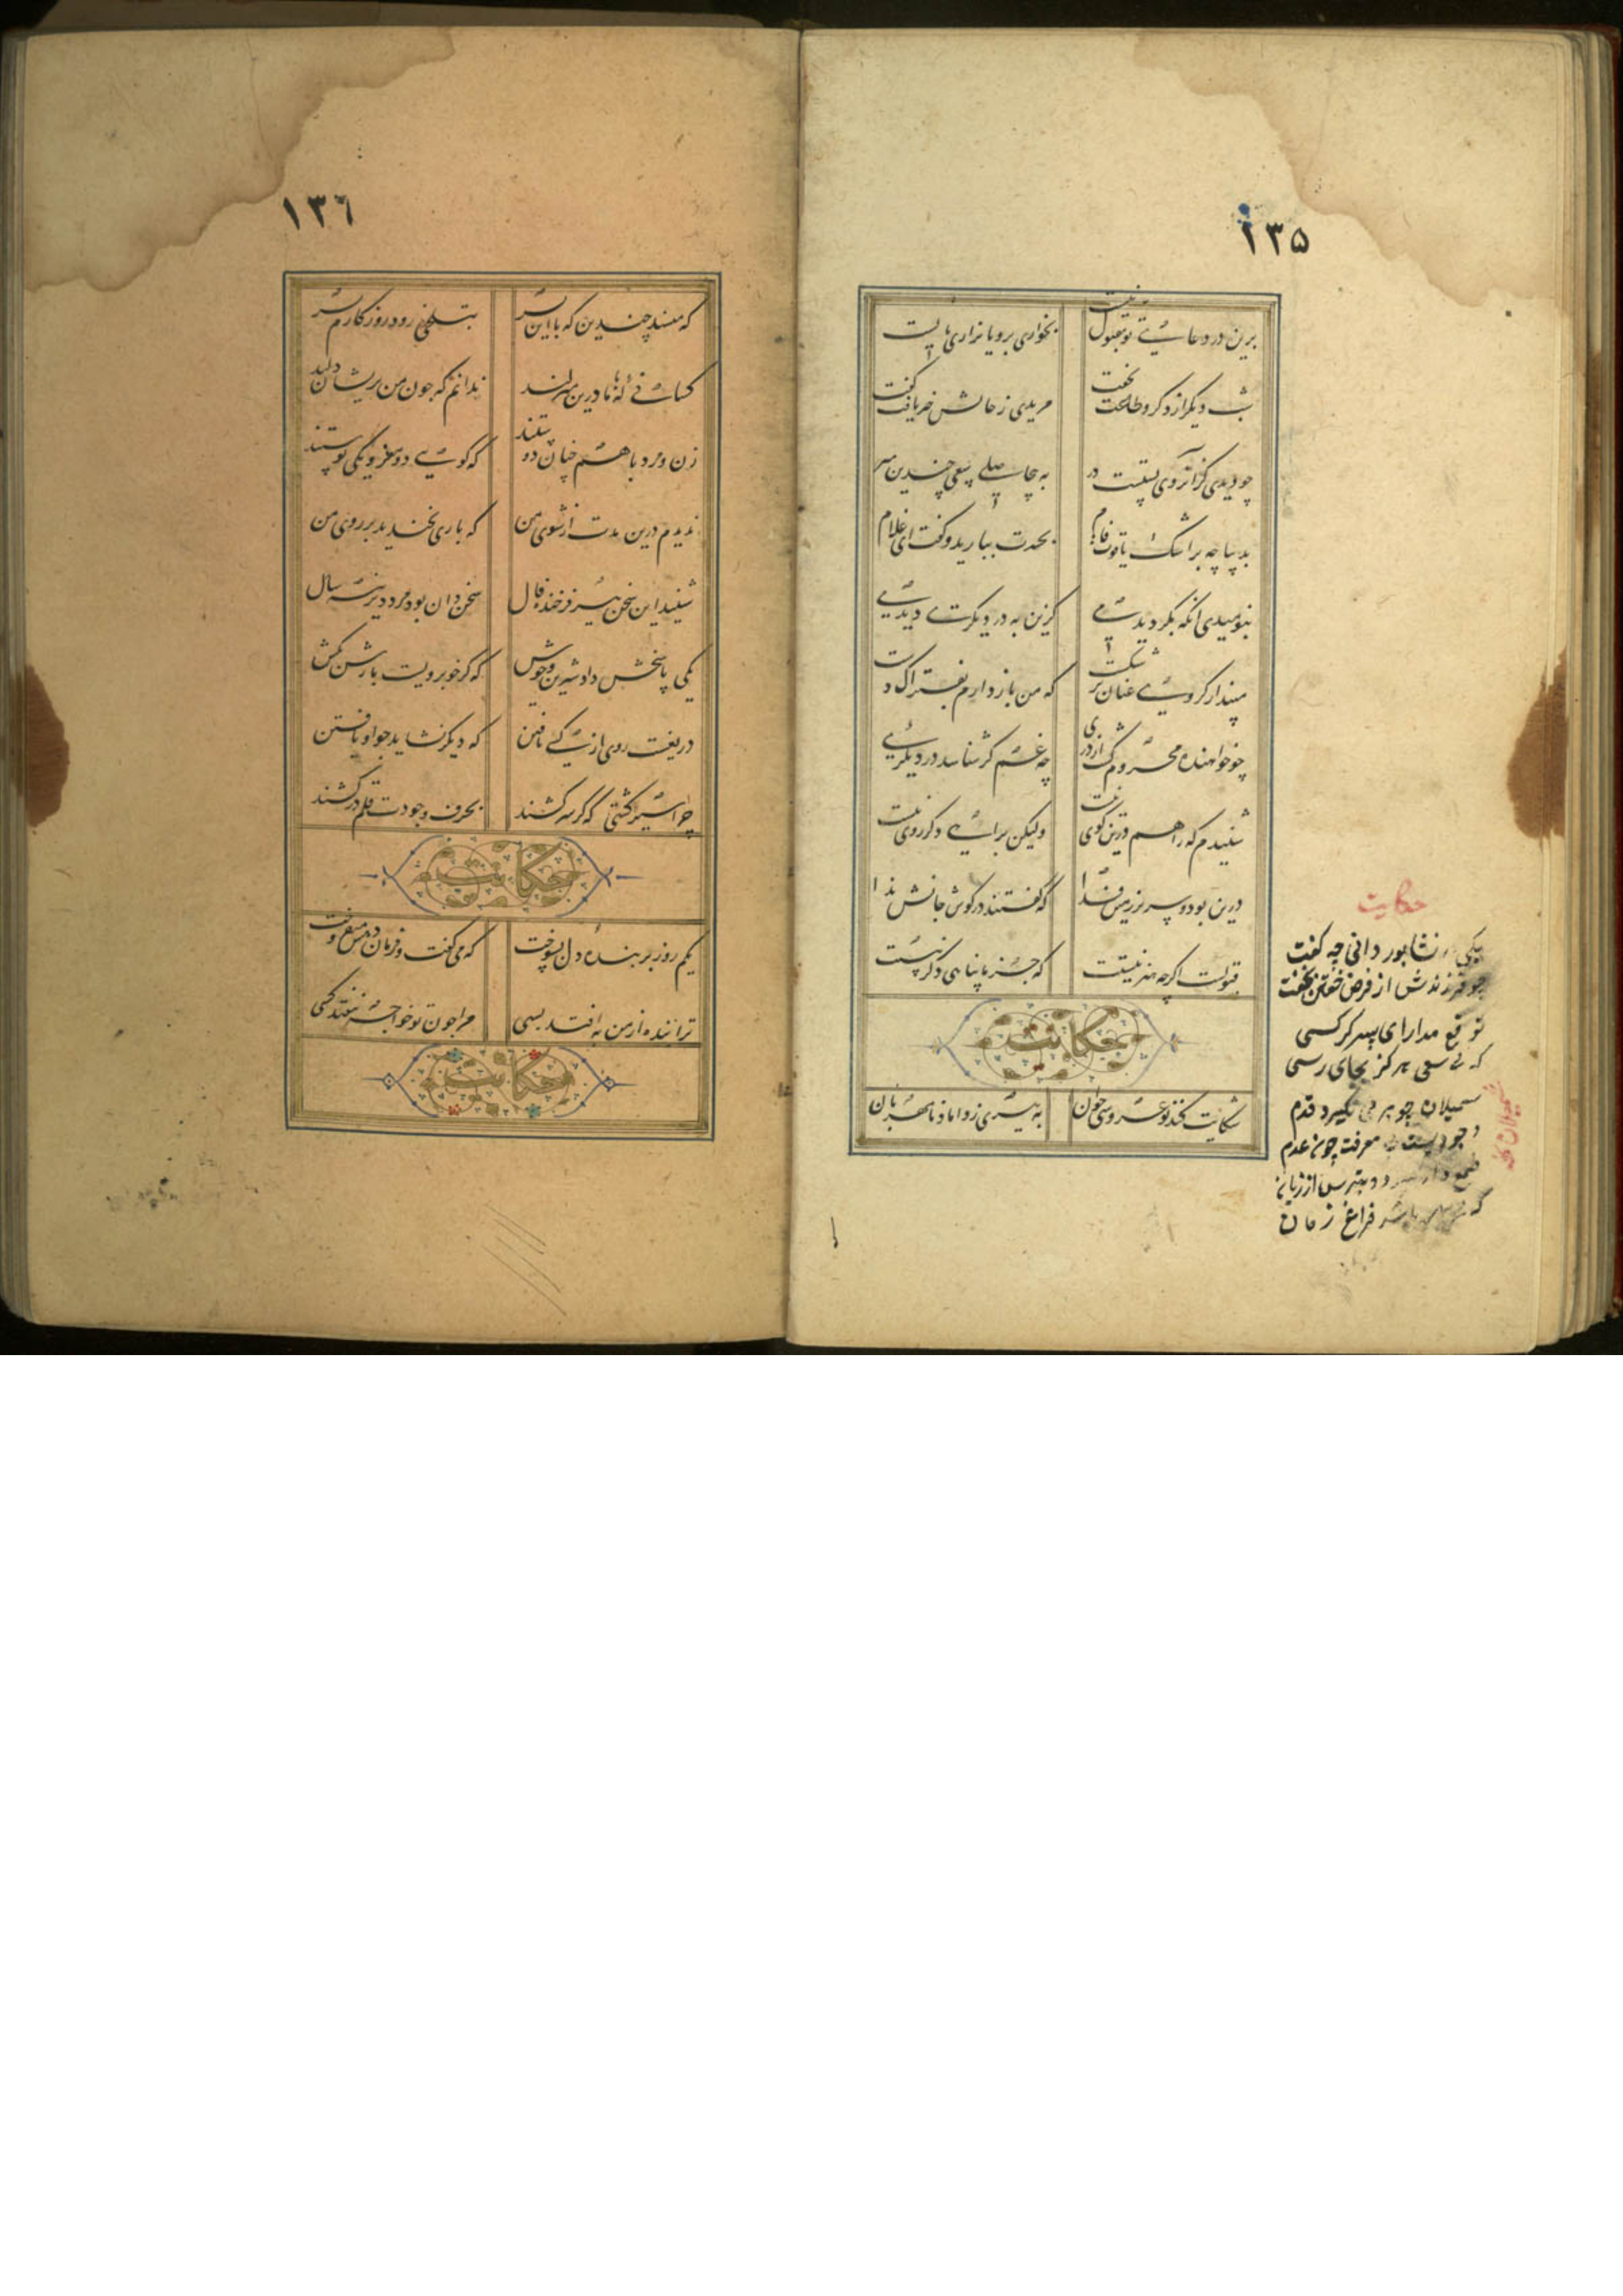 ۱۳۵
برین در دعای تو مقبول نیست
بخواری برو یا بزاری بایست
شب دیگر از ذکر و طاعت نخفت
مریدی ز حالش خبر یافت گفت
چو دیدی کزان روی بستست در
به بی حاصلی سعی چندین مبر
بدیباچه بر اشک یاقوت فام
بحسرت ببارید و گفت ای غلام
بنومیدی آنکه بگردیدمی
کزین به در دیگری دیدمی
مپندار گر وی عنان بر شکست
که من باز دارم ز فتراک دست
چو خواهنده محروم گشت از دری
چه غم گر شناسد در دیگری
شنیدم که راهم درین کوی نیست
ولیکن براهی دگر روی نیست
درین بود و سر بر زمین فدا
که گفتند در گوش جانش ندا
قبولست اگرچه هنر نیستت
که جز ما پناهی دگر نیستت
حکایت
شکایت کند نوعروسی جوان
به پیری ز داماد نامهربان
حکایت
یکی در نشابور دانی چه گفت
چو فرزندش از فرض خفتن بخفت
توقع مدار ای پسر گر کسی
که بی سعی هرگز بجای رسی
سمیلان چو بر می نگیرد قدم
وجودیست بی معرفت چون عدم
طمع دار سود و بترس از زیان
که باشد فراغ زمان
۱۳۶
که مپسند چندین که با این پسر
بتلخی رود روزگارم بسر
کسانی که با ما درین منزلند
ندانم که چون من پریشان دلند
زن و مرد با هم چنان دوستند
که گوئی دو مغز و یکی پوستند
ندیدم درین مدت از شوی من
که باری بخندید بر روی من
شنید این سخن پیر فرخنده فال
سخن دان بود مرد دیرینه سال
یکی پاسخش داد شیرین و خوش
که گر خوبرویست بارش بکش
دریغست روی از کسی تافتن
که دیگر نشاید چو او یافتن
چرا سرکشی که گر سر کشند
بحرف وجودت قلم در کشند
حکایت
یکم روز بر بنده دل بسوخت
که می گفت و فرماندهش می فروخت
ترا بنده از من به افتد بسی
مرا چون تو خواجه نیفتد کسی
حکایت